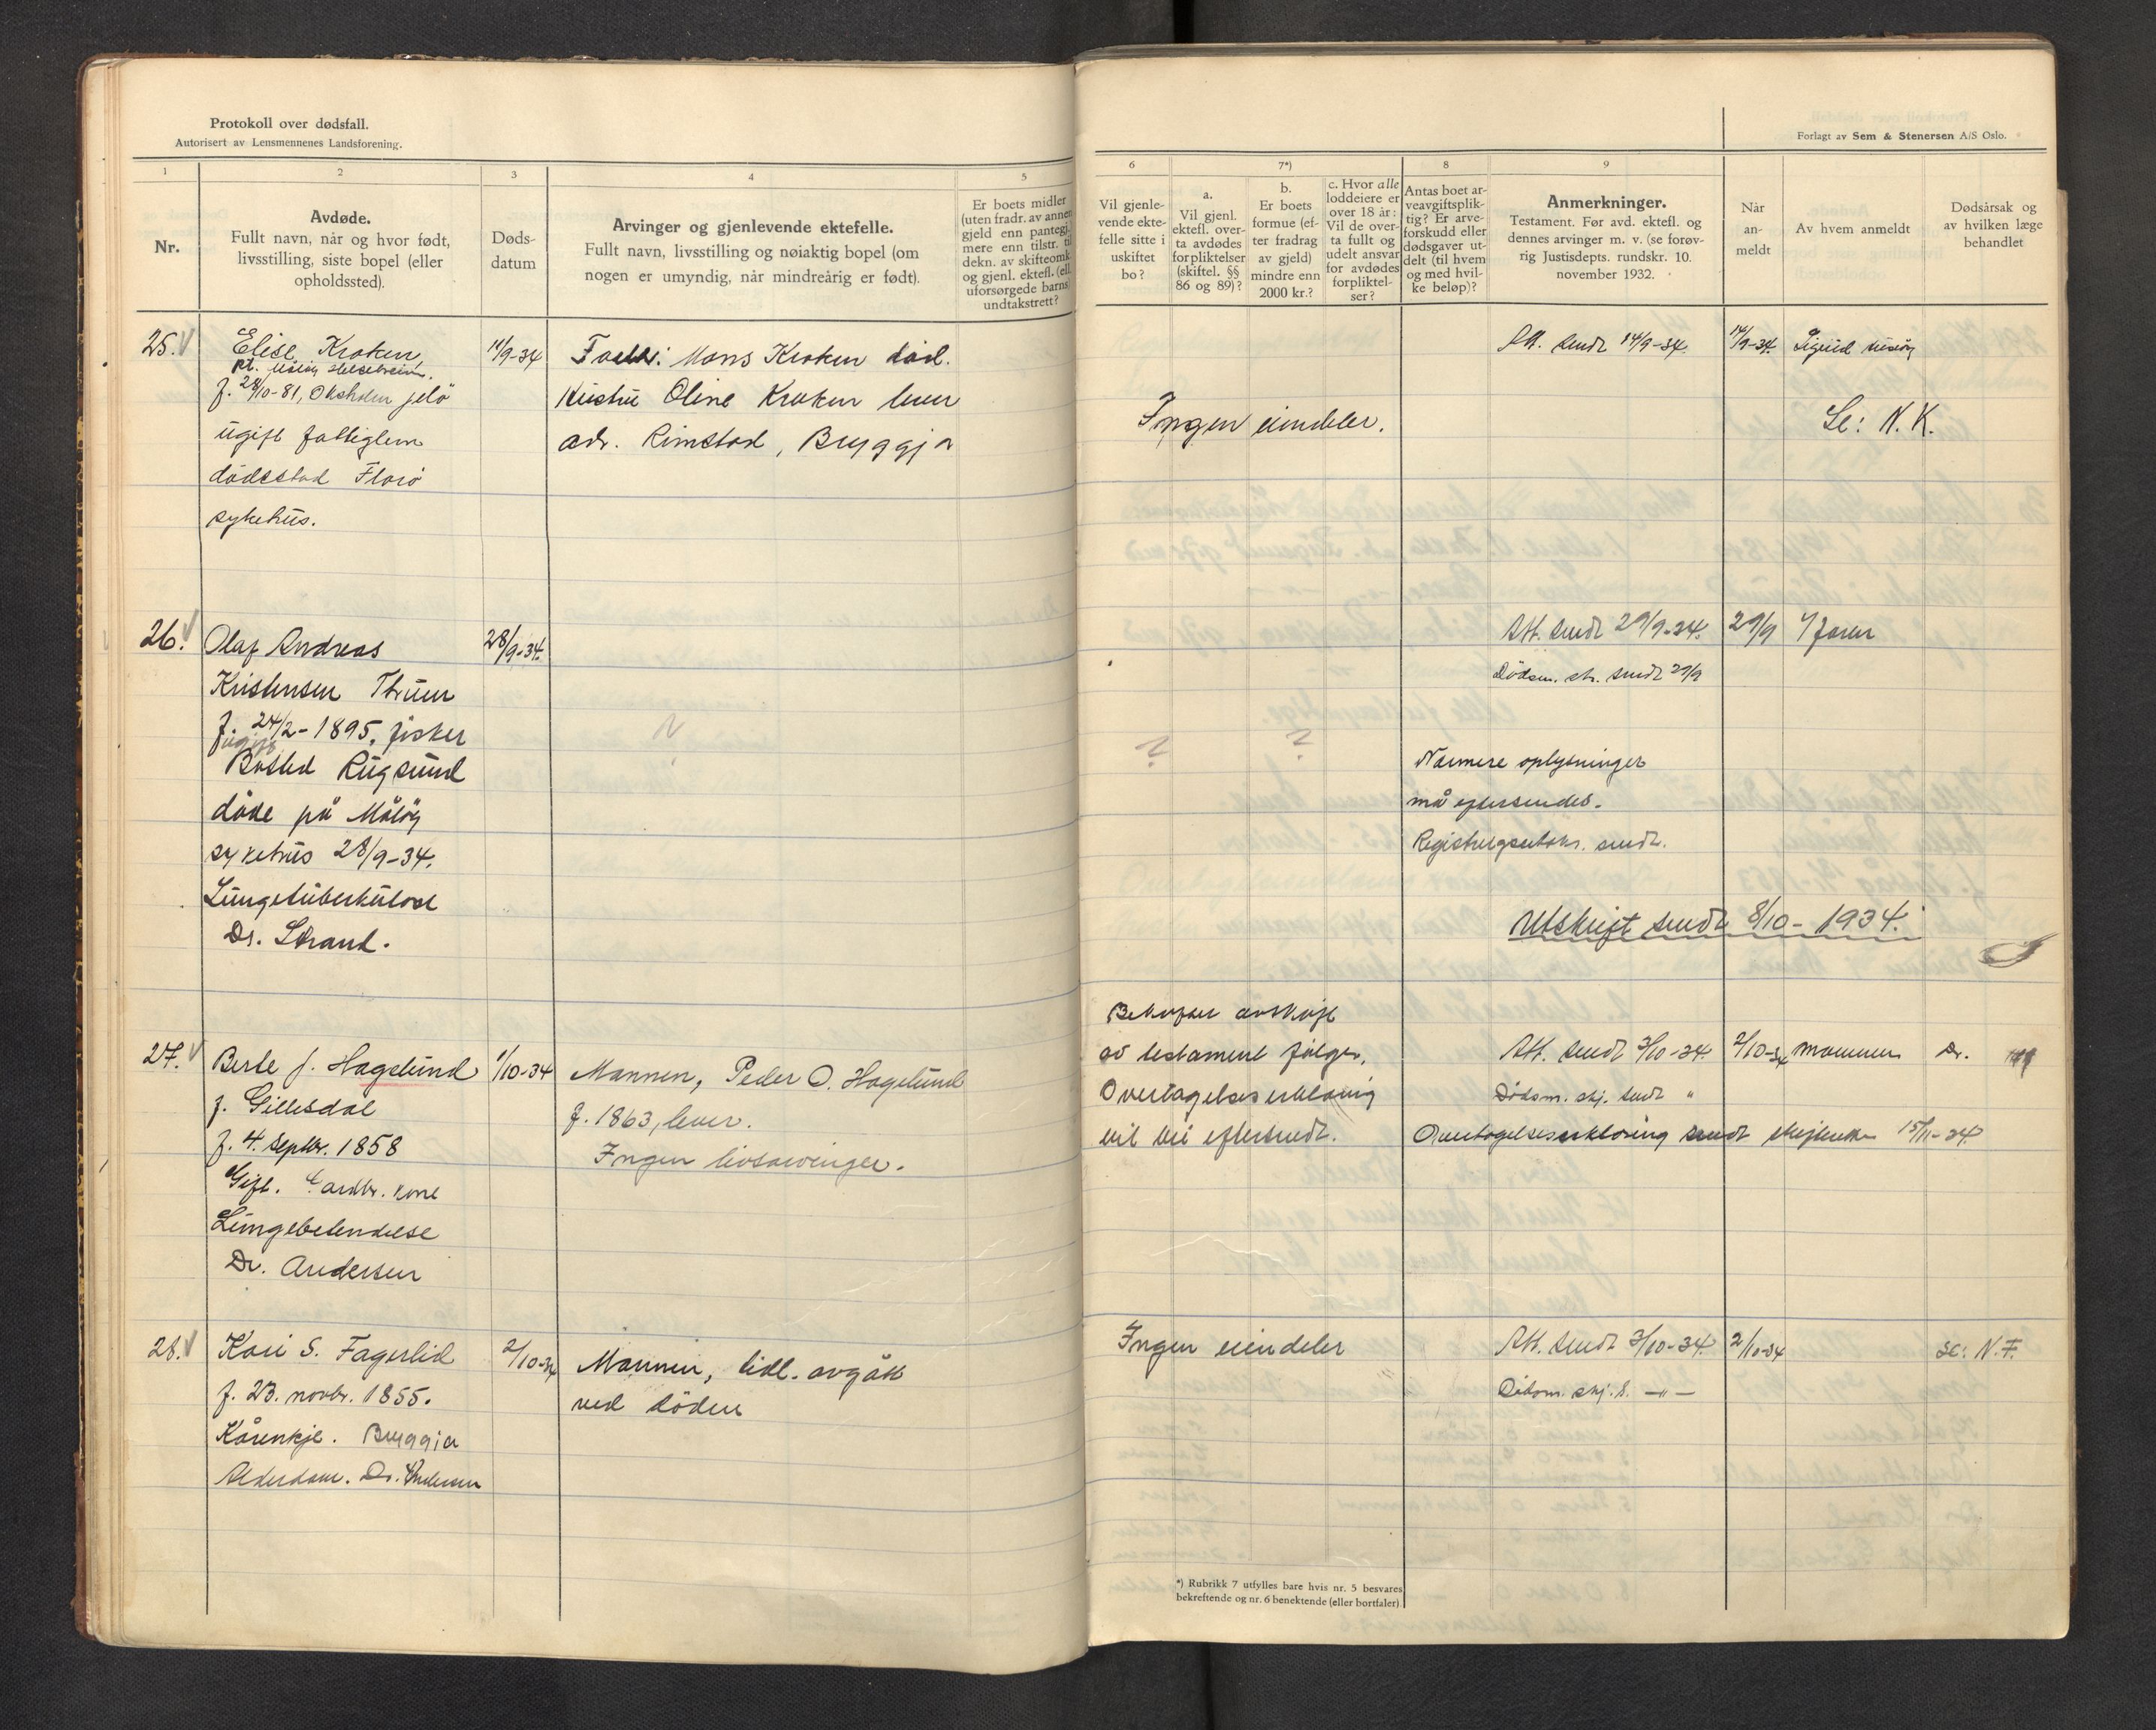 Protokoll over dødsfall.
Autorisert av Lensmennenes Landsforening.
Forlagt av Sem & Stenersen A/S Oslo.
1
2
3
4
5
6
7*)
8
9
Nr.
Avdøde.
Fullt navn, når og hvor født,
livsstilling, siste bopel (eller
opholdssted).
Døds-
datum
Arvinger og gjenlevende ektefelle.
Fullt navn, livsstilling og nøiaktig bopel (om
nogen er umyndig, når mindreårig er født).
Er boets midler
(uten fradr. av annen
gjeld enn pantegj.
mere enn tilstr. til
dekn. av skifteomk.
og gjenl. ektefl. (ell.
uforsørgede barns)
undtakstrett?
Vil gjenle-
vende ekte-
felle sitte i
uskiftet
bo?
a.
Vil gjenl.
ektefl. over-
ta avdødes
forpliktelser
(skiftel. §§
86 og 89)?
b.
Er boets
formue (ef-
ter fradrag
av gjeld)
mindre enn
2000 kr.?
c. Hvor alle
loddeiere er
over 18 år:
Vil de over-
ta fullt og
udelt ansvar
for avdødes
forpliktel-
ser?
Antas boet ar-
veavgiftsplik-
tig? Er arve-
forskudd eller
dødsgaver ut-
delt (til hvem
og med hvil-
ke beløp)?
Anmerkninger.
Testament. Før avd. ektefl. og
dennes arvinger m. v. (se forøv-
rig Justisdepts. rundskr. 10.
november 1932.
Når
an-
meldt
Av hvem anmeldt
Dødsårsak og
av hvilken læge
behandlet
25.
Elise Kroken
f. 28/10-81, Oksholm
ugift fattiglem
dødsstad Florø
sykehus.
11/9-34
Mons Kroken død.
Oline Kroken lever
adr. Rimstad, Bryggja
Ingen eiendeler.
Att. sendt 14/9-34.
14/9-34.
Se: N. K.
26.
Olaf Andreas
Kristensen
f. 24/2-1895, fisker
ugift
Bosted Rugsund
døde på Måløy
sykehus 28/9-34.
Lungetuberkulose
Dr. Strand.
28/9-34.
?
?
?
Att. sendt 29/9-34.
Dødsm. skj. sendt 29/9
Nærmere oplysninger
må eftersendes.
sendt.
Utskrift sendt 8/10-1934.
29/9
27.
Berte J. Hagelund
f. Gillesdal
f. 4. septbr. 1858
Gift. Gardbr. kone
Lungebetendelse
Dr. Andersen
1/10-34
Mannen, Peder O. Hagelund
f. 1863, lever.
Ingen livsarvinger.
Bekreftet avskrift
av testament følger.
Overtagelseserklæring
vil bli eftersendt.
Att. sendt 3/10-34.
Dødsm. skj. sendt "
Overtagelseserklæring sendt 15/11-34
2/10-34
Mannen
Dr.
28.
Kari S. Fagerlid
f. 23. novbr. 1855.
Bryggja
Alderdom. Dr. Andersen
2/10-34
Mannen, tidl. avgått
ved døden
Ingen eiendeler
Att. sendt 3/10-34.
Dødsm. skj. s. -"-
2/10-34
se: N. F.
*) Rubrikk 7 utfylles bare hvis nr. 5 besvares
bekreftende og nr. 6 benektende (eller bortfaler)